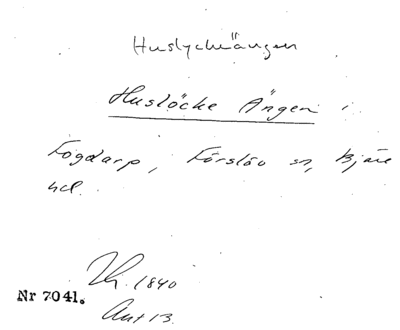 Huslyckeängen
Huslöcke Ängen
Fogdarp, Förslöv sn, Bjäre
hd.
Nr 7041.
1840
Akt 13.